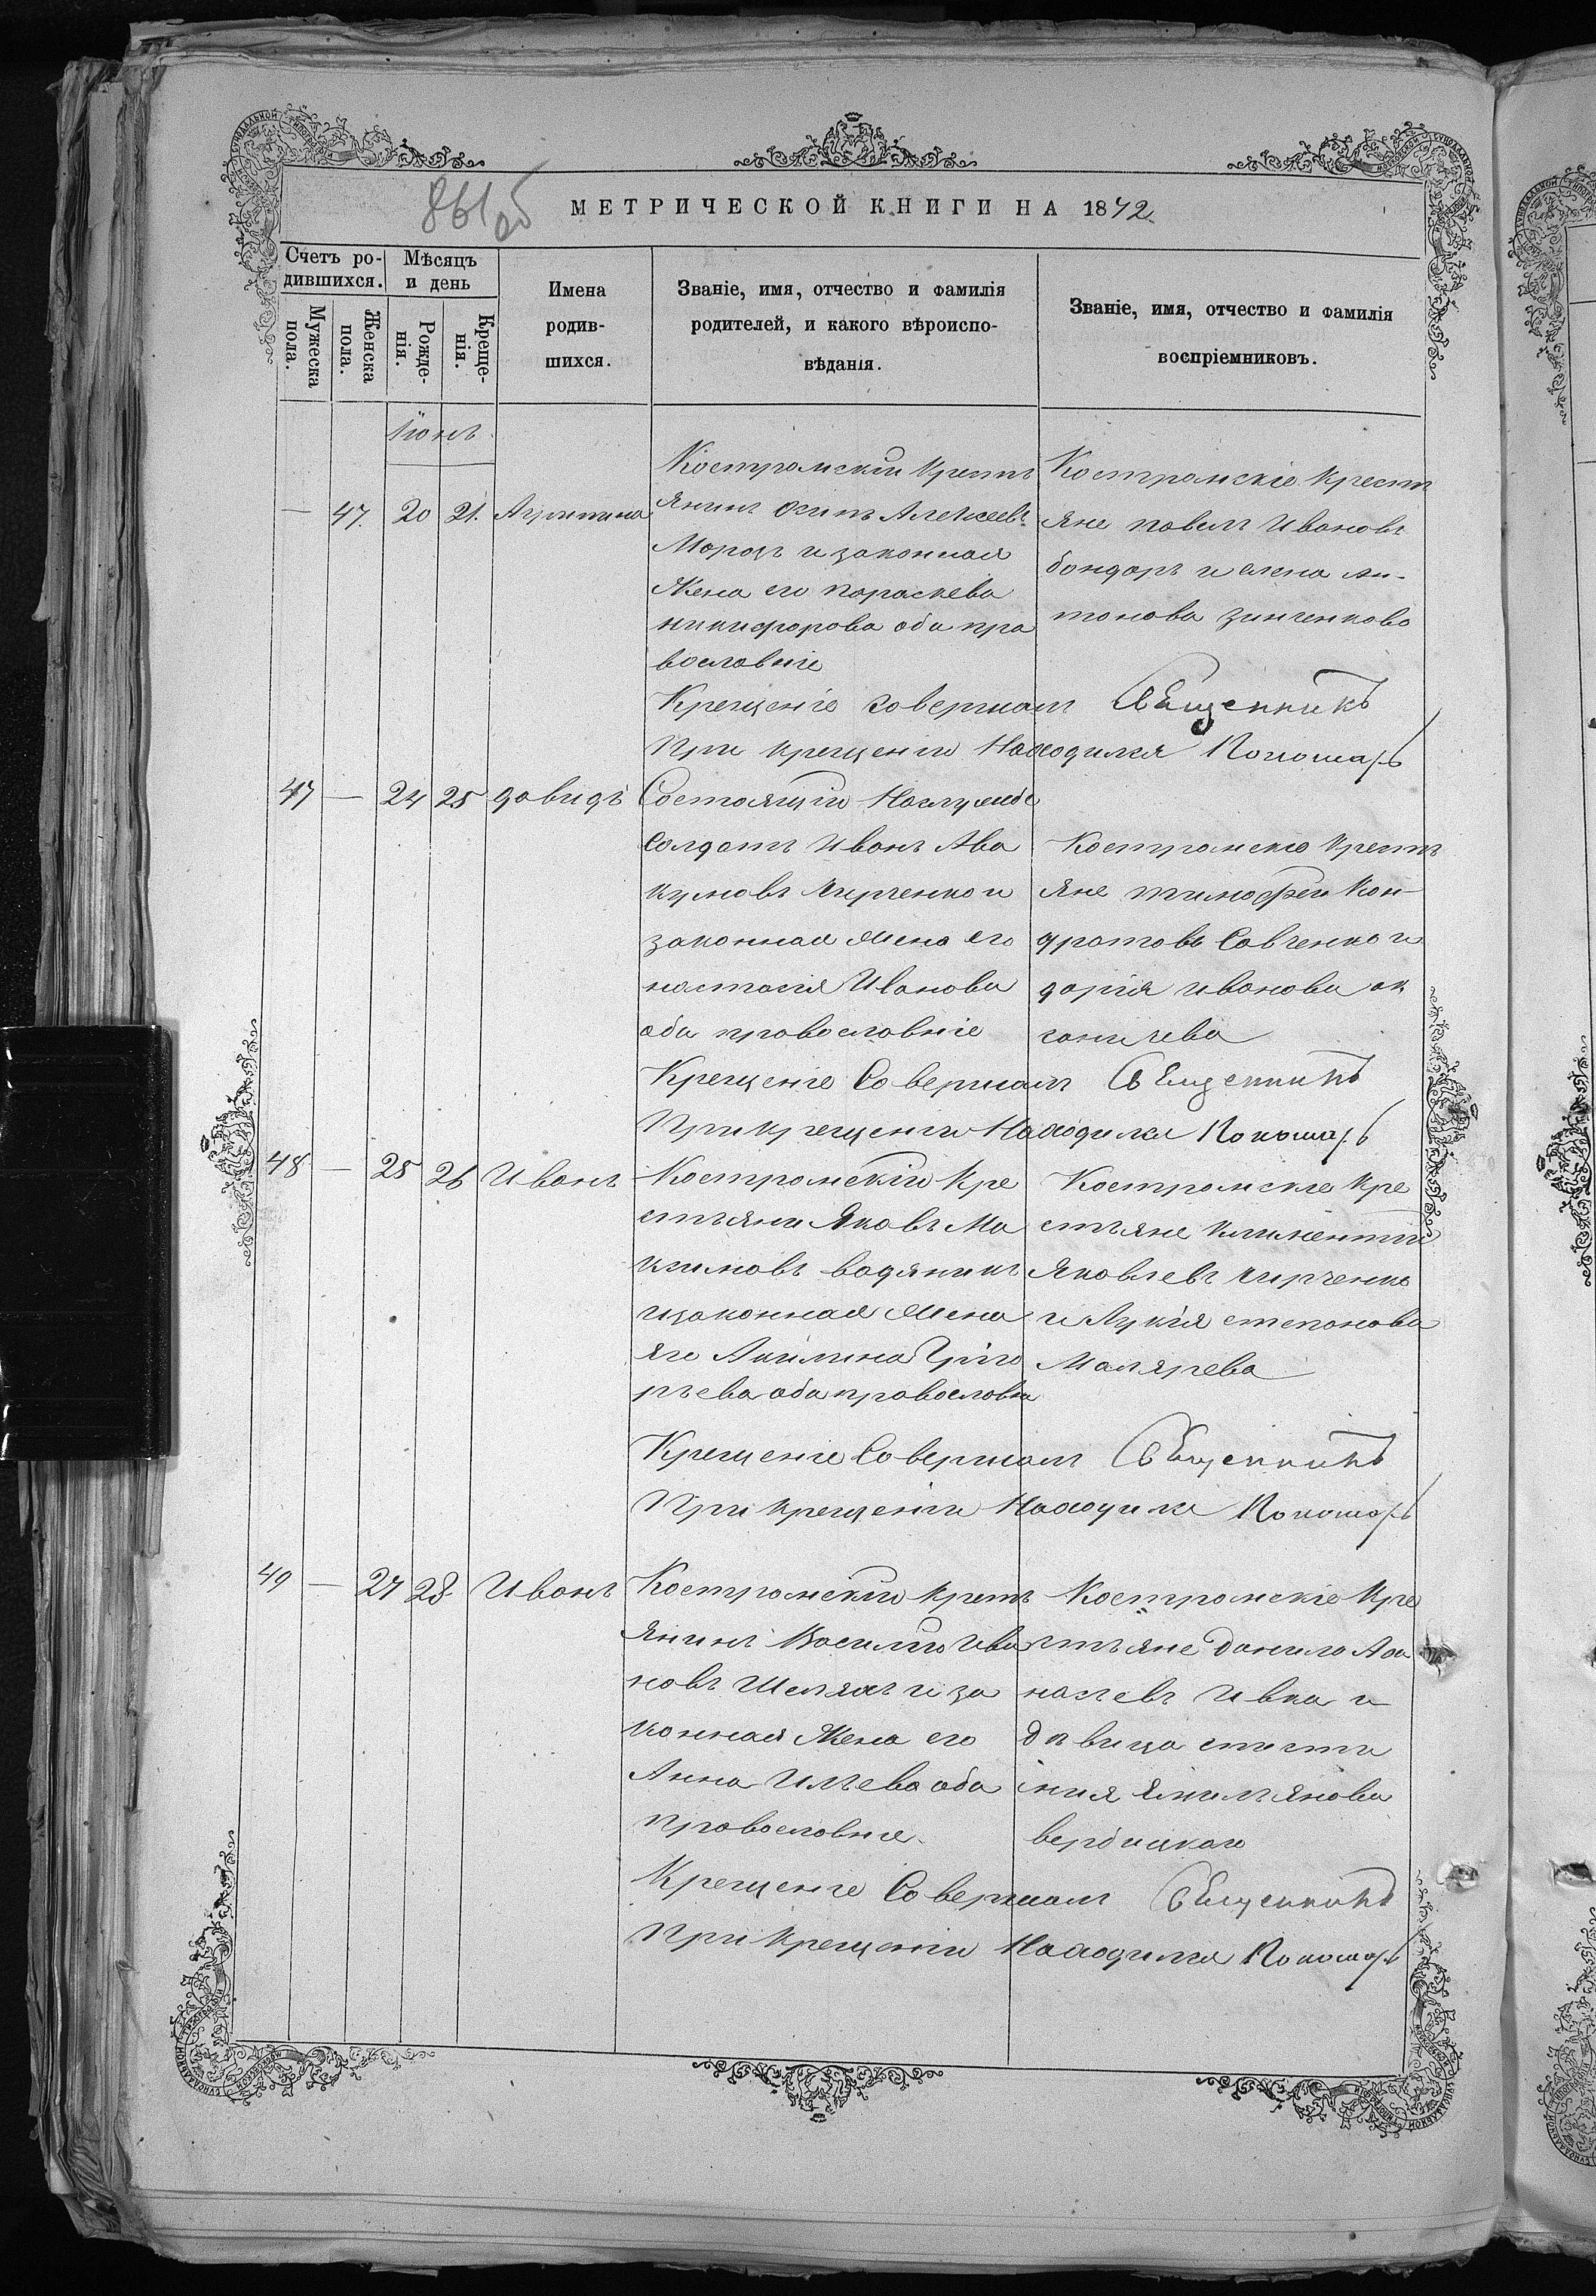 861 об
МЕТРИЧЕСКОЙ КНИГИ НА 1872
Счетъ ро-
дившихся.
Мѣсяцъ
и день
Мужеска
пола.
Женска
пола.
Рожде-
нія.
Креще-
нія.
Имена
родив-
шихся.
Званіе, имя, отчество и фамилія
родителей, и какого вѣроиспо-
вѣданія.
Званіе, имя, отчество и фамилія
воспріемниковъ.
Іюнь
— 47 20 21.
Костромскій Кресть
янинъ Осипъ Алексеевъ
Морозъ и законная
Жена его Параскева
никифорова оба пра
вославніе
Костромскіе Кресть
яне павелъ Ивановъ
бондарь и елена ан-
тонова зинченкова
Крещеніе совершалъ Священникъ
При крещеніи Находился Пономарь
47 — 24 25 давидъ
Состоящій Наслужбе
Солдатъ Иванъ Ава
кумовъ Кирченко и
законная жена его
настасія Иванова
оба православніе
Костромскіе Кресть
яне тимофей Кон-
дратовъ Савченко и
дарія иванова
Крещеніе Совершалъ Священникъ
При крещеніи Находился Пономарь
48 — 25 26 Иванъ
Костромскій Кре
стьяни Яковъ Ма
ксимовъ водяникъ
изаконная Жена
яго Акилина Григо
рьева оба православн
Костромские Кре
стьяне климентій
Яковлевъ кирченко
и Лукія степанова
Малярева
Крещеніе Совершалъ Священникъ
При крещеніи Находился Пономарь
49 — 27 28 Иванъ
Костромскій кресть
янинъ Василій Ива
новъ Шеляхъ и за
конная Жена его
Анна Ильева оба
православніе
Костромскіе Кре
стьяне данило Афа
насьевъ Ивка и
дѣвица
Ямильянова
вербицкаго
Крещеніе Совершалъ Священникъ
При крещеніи Находился Пономарь